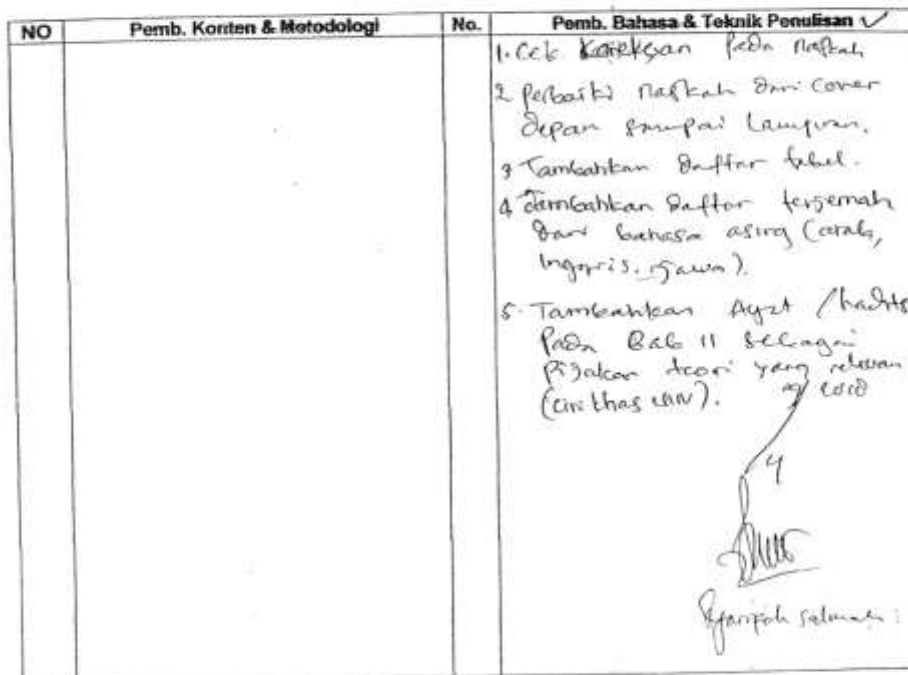 NO Pemb. Konten & Metodologi No. Pemb. Bahasa & Teknik Penulisan ✓
1. Cek Koreksian pada naskah
2 perbaiki naskah dari cover
depan sampai lampiran.
3 Tambahkan daftar tabel.
4 Tambahkan daftar terjemah
dari bahasa asing (arab,
Inggris, Jawa).
5. Tambahkan Ayat / hadits
pada Bab II sebagai
pijakan teori yang relevan
(ciri khas UIN).
4
Syarifah Salmah